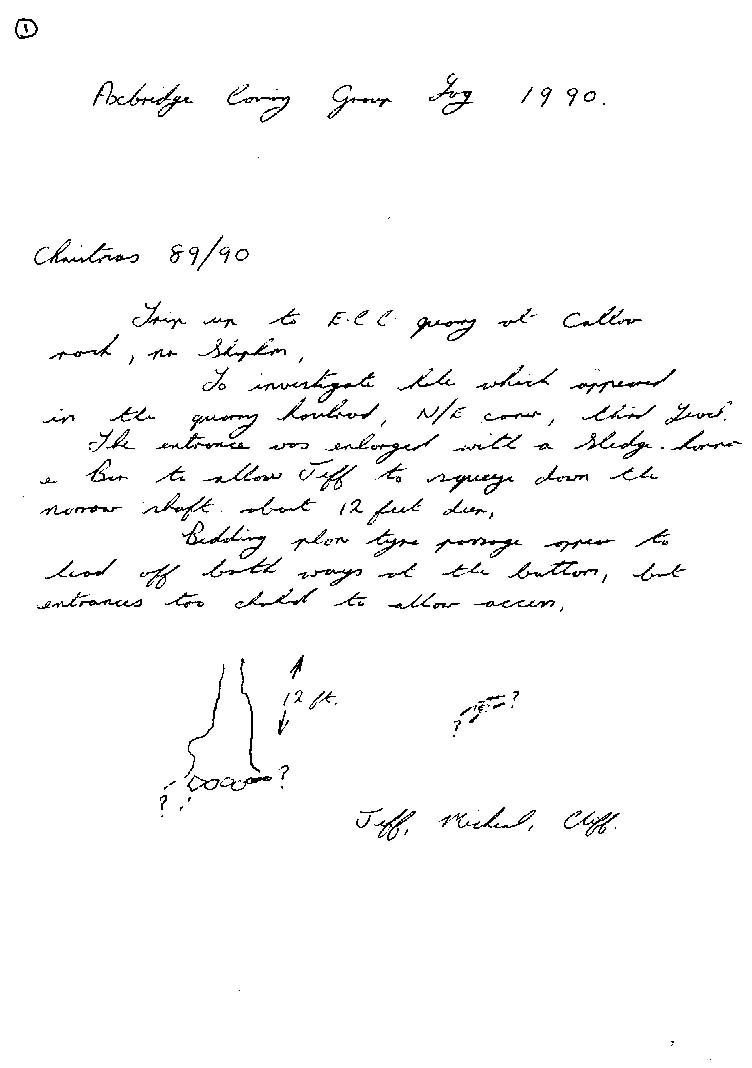 1
Axbridge Caving Group Log 1990.
Christmas 89/90
Trip up to E.C.C. quarry at Callow
rock, nr Shipham,
To investigate hole which appeared
in the quarry haulroad, N/E corner, third level.
The entrance was enlarged with a sledge-hamme
e Bar to allow Jeff to squeeze down the
narrow shaft about 12 feet deep,
Bedding plane type passage appear to
lead off both ways at the bottom, but
entrances too choked to allow access,
12 ft.
?
?
?
?
Jeff, Micheal, Cliff.